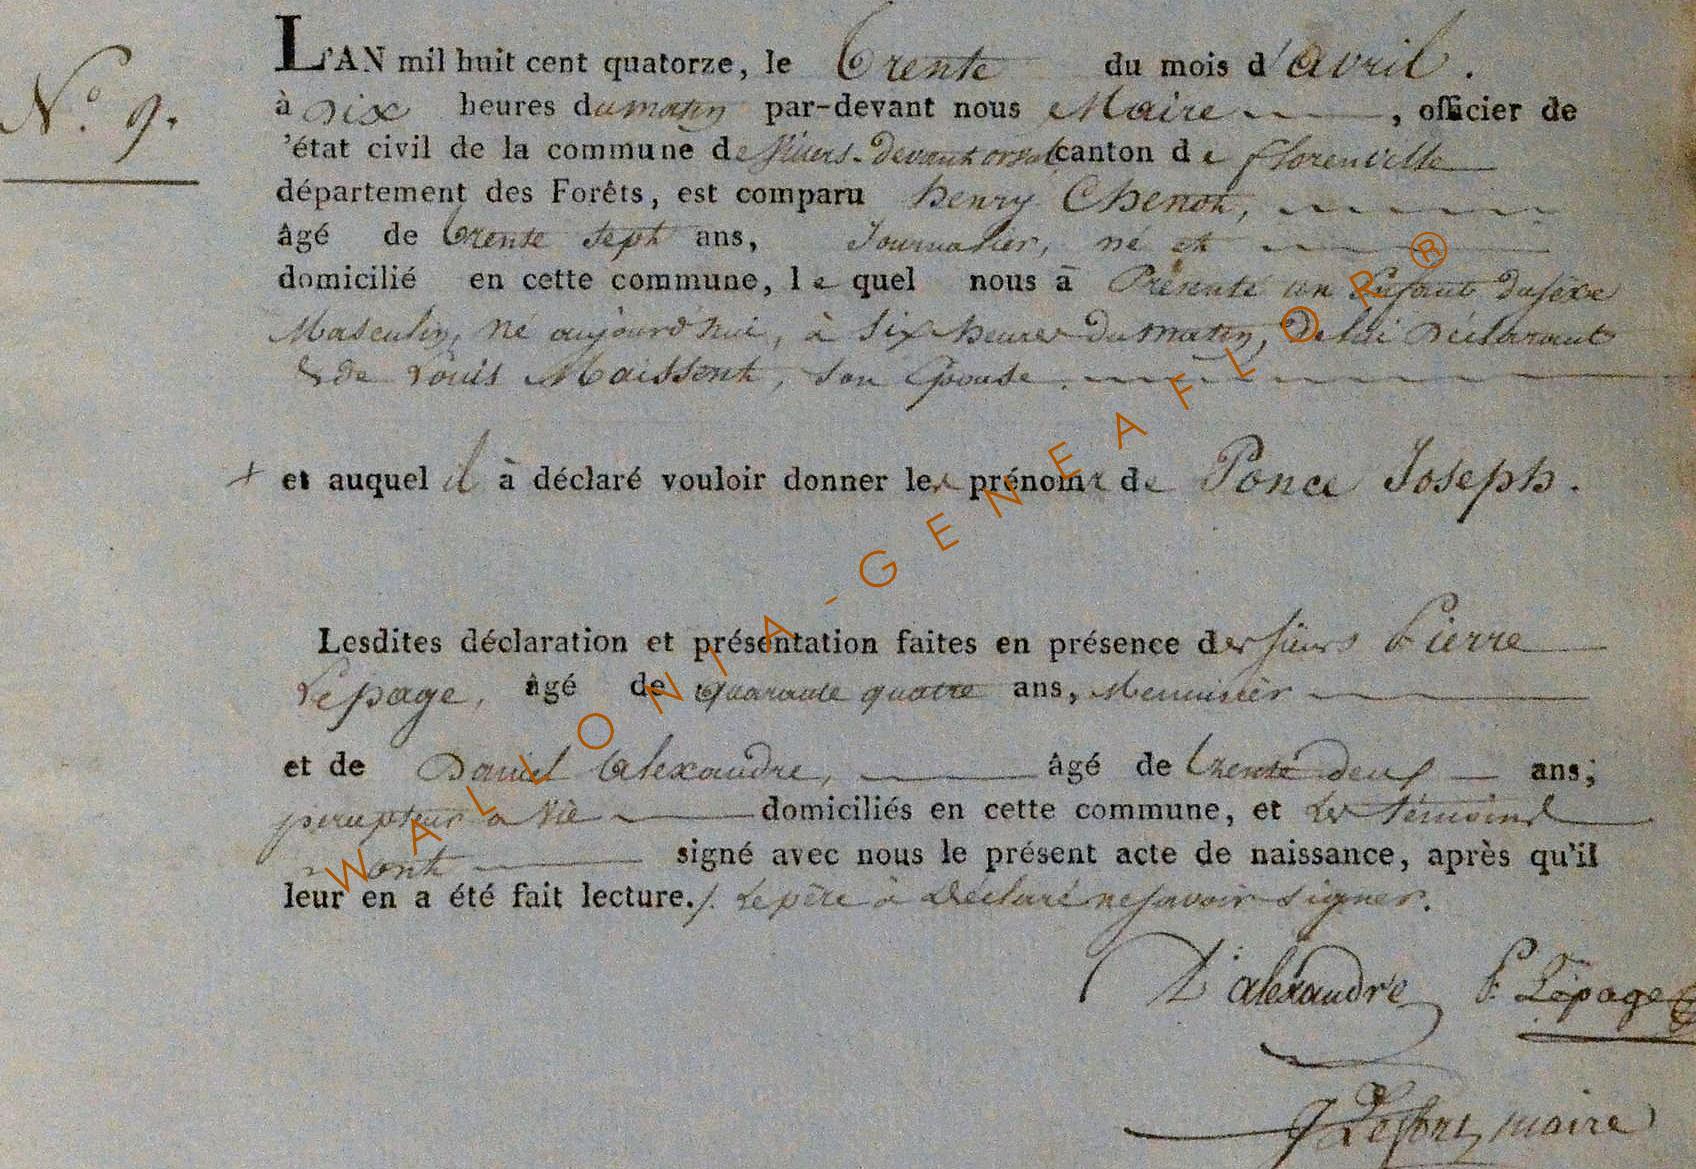 N.° 9.
L'AN mil huit cent quatorze, le trente du mois d'avril.
à Dix heures du matin par-devant nous Maire, officier de
'état civil de la commune de Villers-devant-orval canton de florenville
département des Forêts, est comparu henry Chenot,
âgé de trente sept ans, Journalier, né et
domicilié en cette commune, le quel nous à Présenté un Enfant du sexe
Masculin, né aujourd'hui, à six heures du matin, De lui Déclarant
& de Louis Maissent, son Epouse.
+ et auquel il à déclaré vouloir donner les prénoms de Ponce Joseph.
Lesdites déclaration et présentation faites en présence des sieurs Pierre
Lepage, âgé de quarante quatre ans, Menuisier
et de Daniel Alexandre, âgé de trente deux ans;
à vie domiciliés en cette commune, et les témoins
ont signé avec nous le présent acte de naissance, après qu'il
leur en a été fait lecture./. Le père à Déclaré ne savoir signer.
D. alexandre P. Lepage
Lefort maire
WALLONIA-GENEAFLOR®